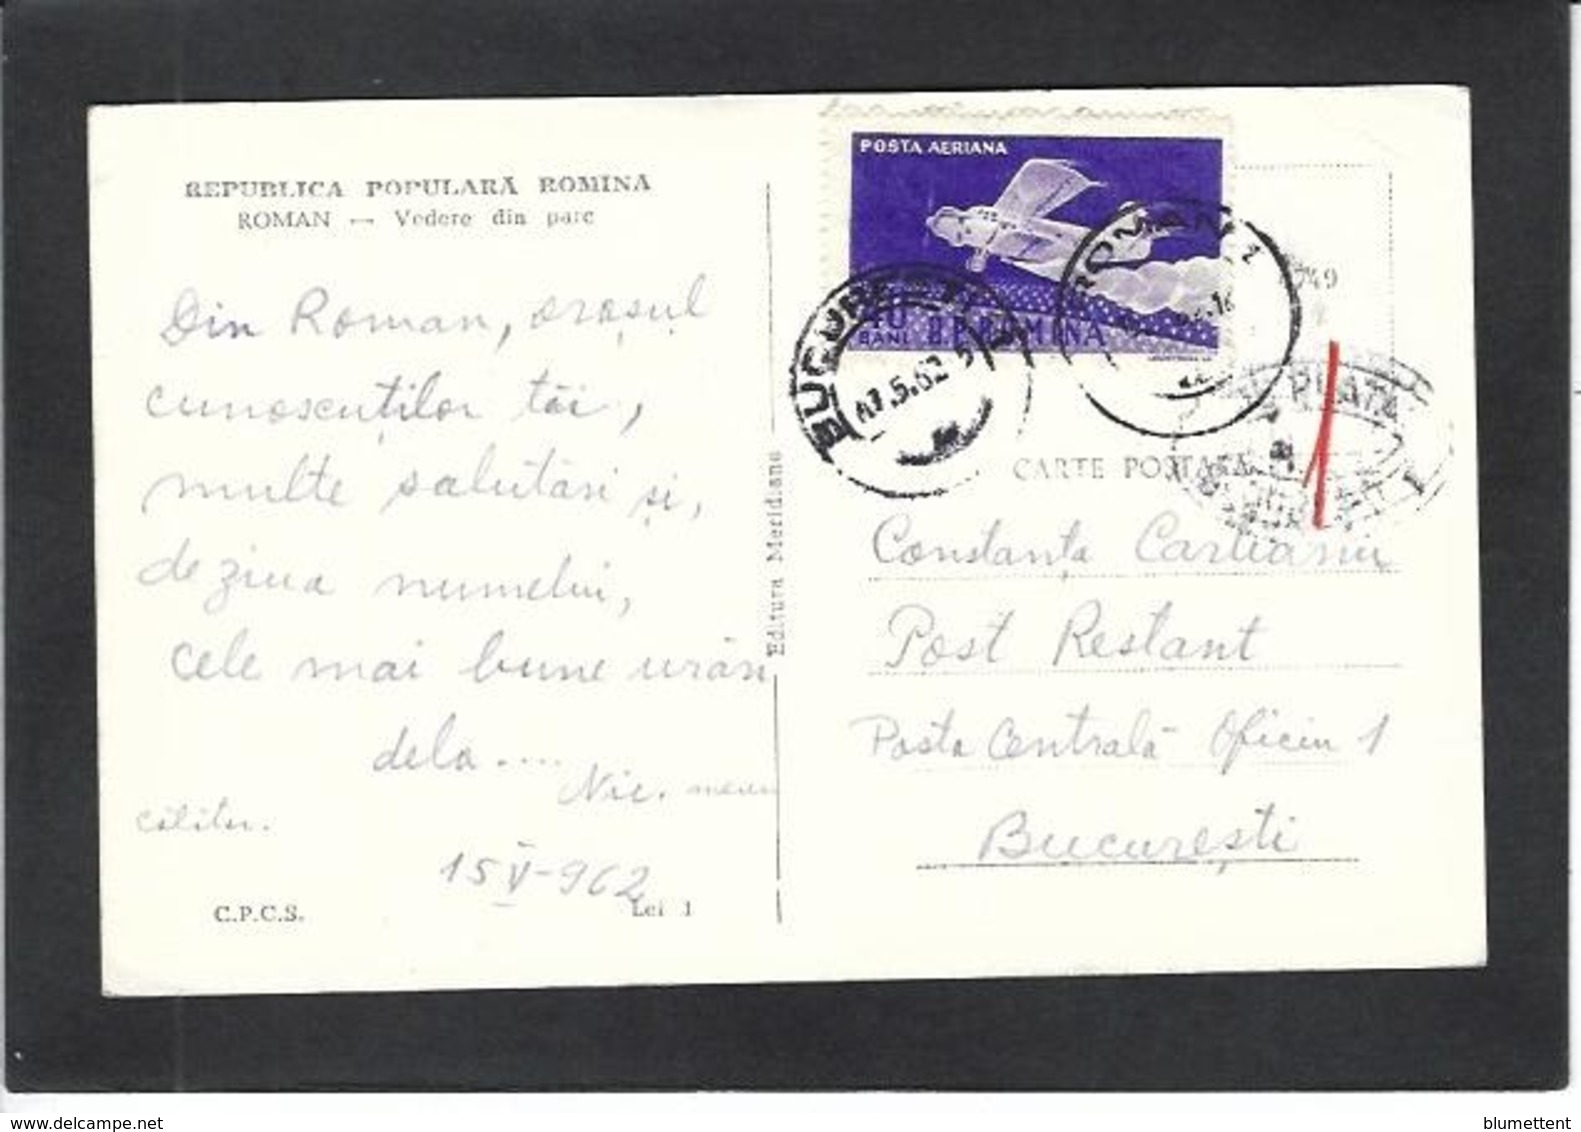 REPUBLICA POPULARĂ ROMINA
ROMAN — Vedere din parc
Din Roman, orașul
cunoscuților tăi,
multe salutări și,
de ziua numelui,
cele mai bune urări
dela ....
Nic.
15 V-962
C.P.C.S.
Lei 1
Editura Meridiane
POSTA AERIANA
40
BANI R.P.ROMINA
BUCUREȘTI
17.5.62
ROMAN
749
CARTE POȘTALĂ
Constanța
Post Restant
Posta Centrală Oficiu 1
București
delcampe.net
blumettent